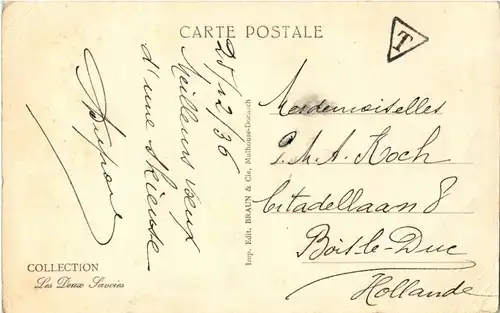 CARTE POSTALE
T
25/12/36
Meilleurs vœux
d'une skieuse
COLLECTION
Les Deux Savoies
Imp. Edit. BRAUN & Cie, Mulhouse-Dornach
Mesdemoiselles
P. M. A. Koch
Citadellaan 8
Bois-le-Duc
Hollande